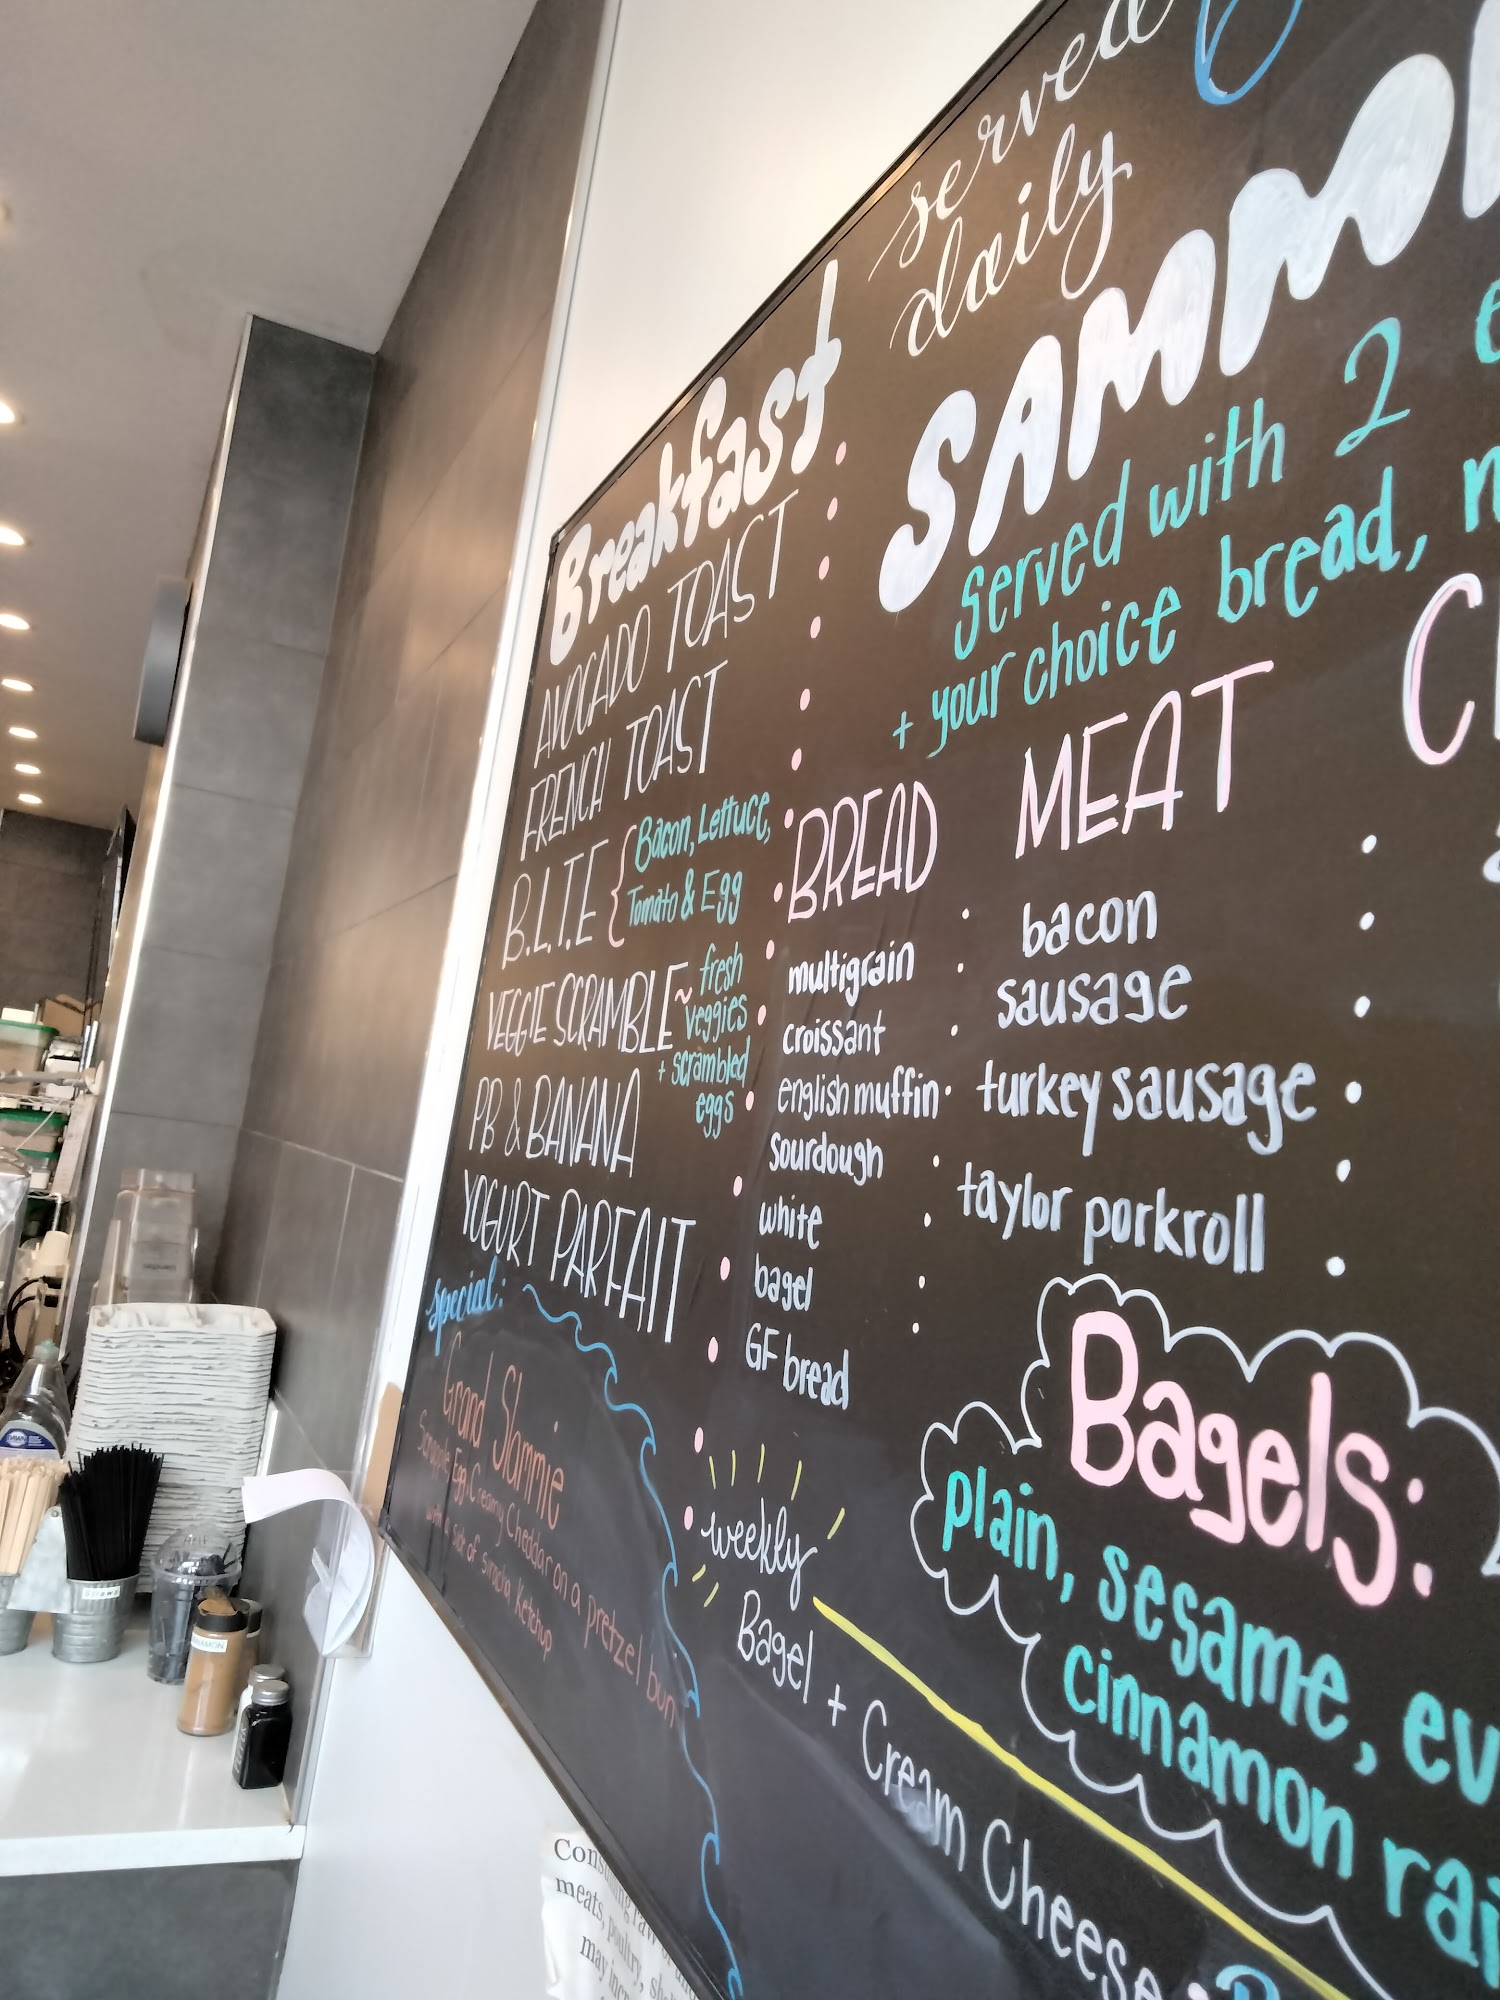 served
daily
Breakfast
AVOCADO TOAST
FRENCH TOAST
B.L.T.E { Bacon, Lettuce,
Tomato & Egg
VEGGIE SCRAMBLE ~ fresh
veggies
+ scrambled
eggs
PB & BANANA
YOGURT PARFAIT
special:
Grand Slammie
Scrapple, Egg, Creamy Cheddar on a pretzel bun
with a side of siracha ketchup
served with 2
+ your choice bread,
BREAD
multigrain
croissant
english muffin
sourdough
white
bagel
GF bread
MEAT
bacon
sausage
turkey sausage
taylor porkroll
Bagels:
plain, sesame,
cinnamon
weekly
Bagel + Cream Cheese
meats, poultry,
may